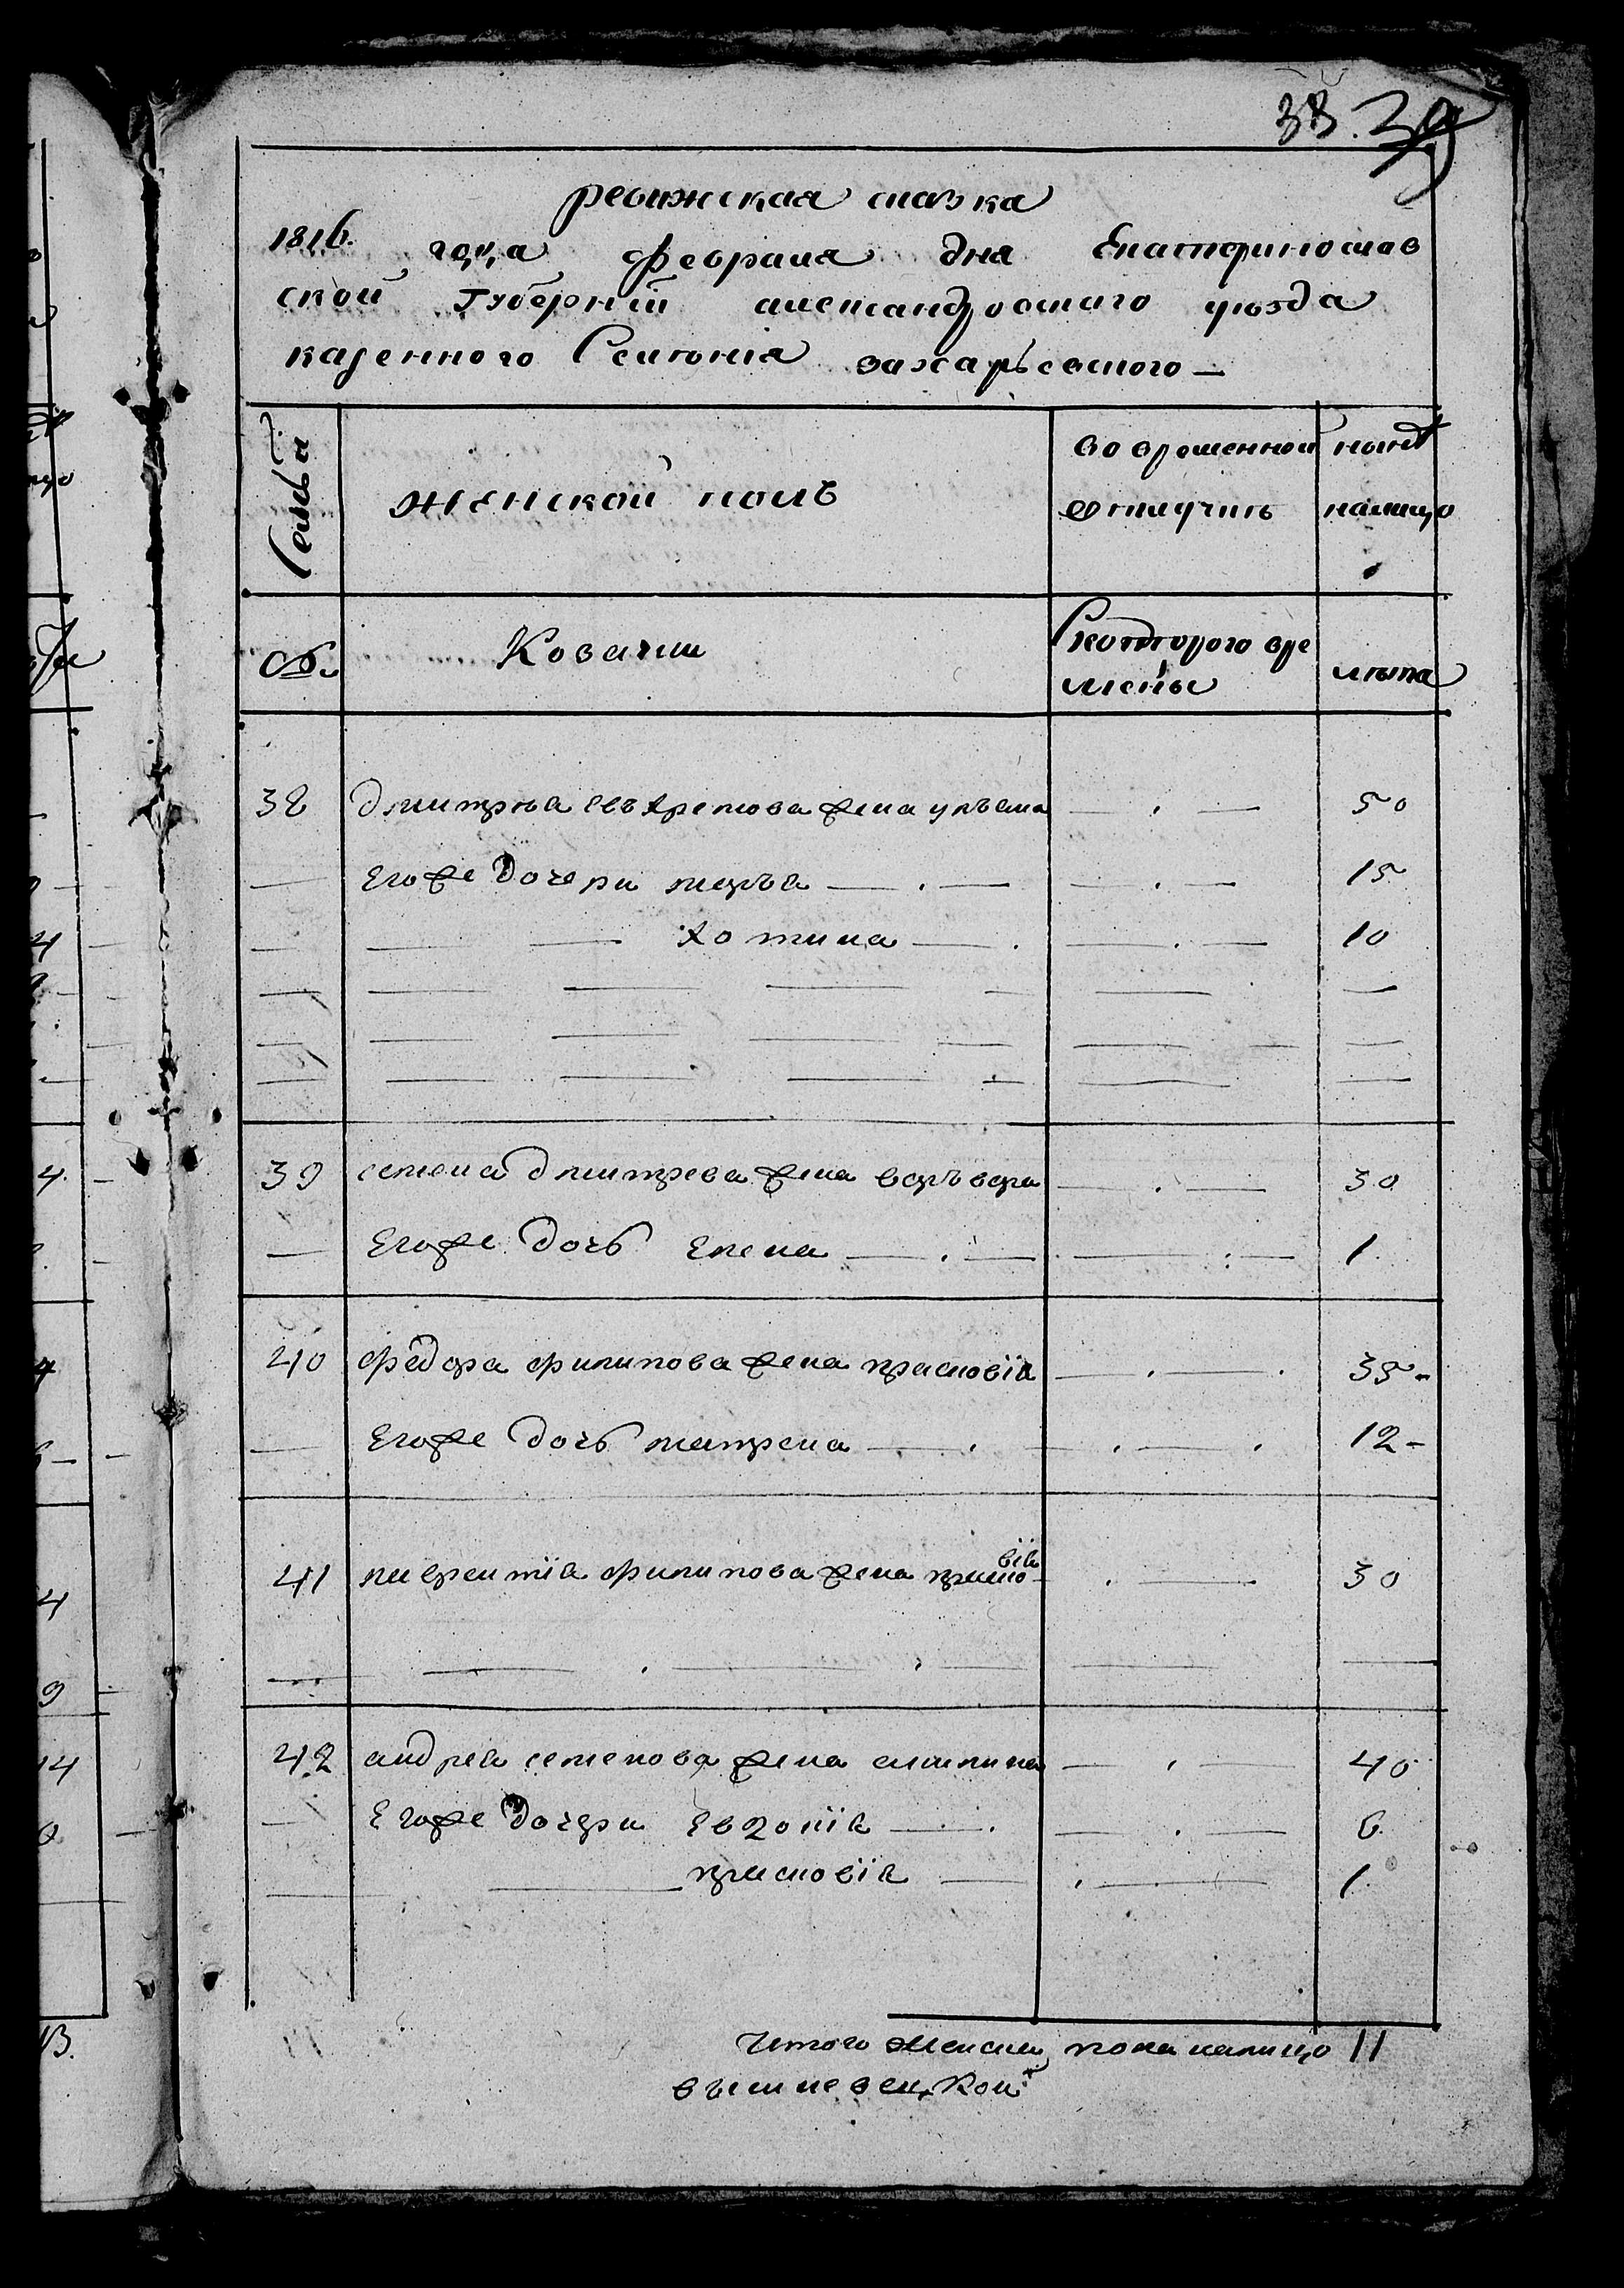 38. 39
ревижская сказка
1816. года февраля дня Екатеринослав
ской Губернiй александровского уѣзда
казенного Селѣнiя захарьевского —
Семьѝ женской полъ во временной отлучкѣ нынѣ налицо
№. Козачки Скоттгорого вре мены лѣта
38 дмитрѣя жена ульяна — . — 50
— Егоже дочери марья — . — 15
— хотина — . — 10
39 семена дмитрева жена варъвара — . — 30
— Егоже дочь Елена — . — 1
40 федора филипова жена прасковiя — . — 35 -
— Егоже дочь матрена — . — 12 -
41 лаврентiя филипова жена праско
вiя — 30
42 андрея семенова жена — . — 40
— Егоже дочери Евдокiя — . — 6
— прасковiя — . — 1
Итого женска пола налицо 11